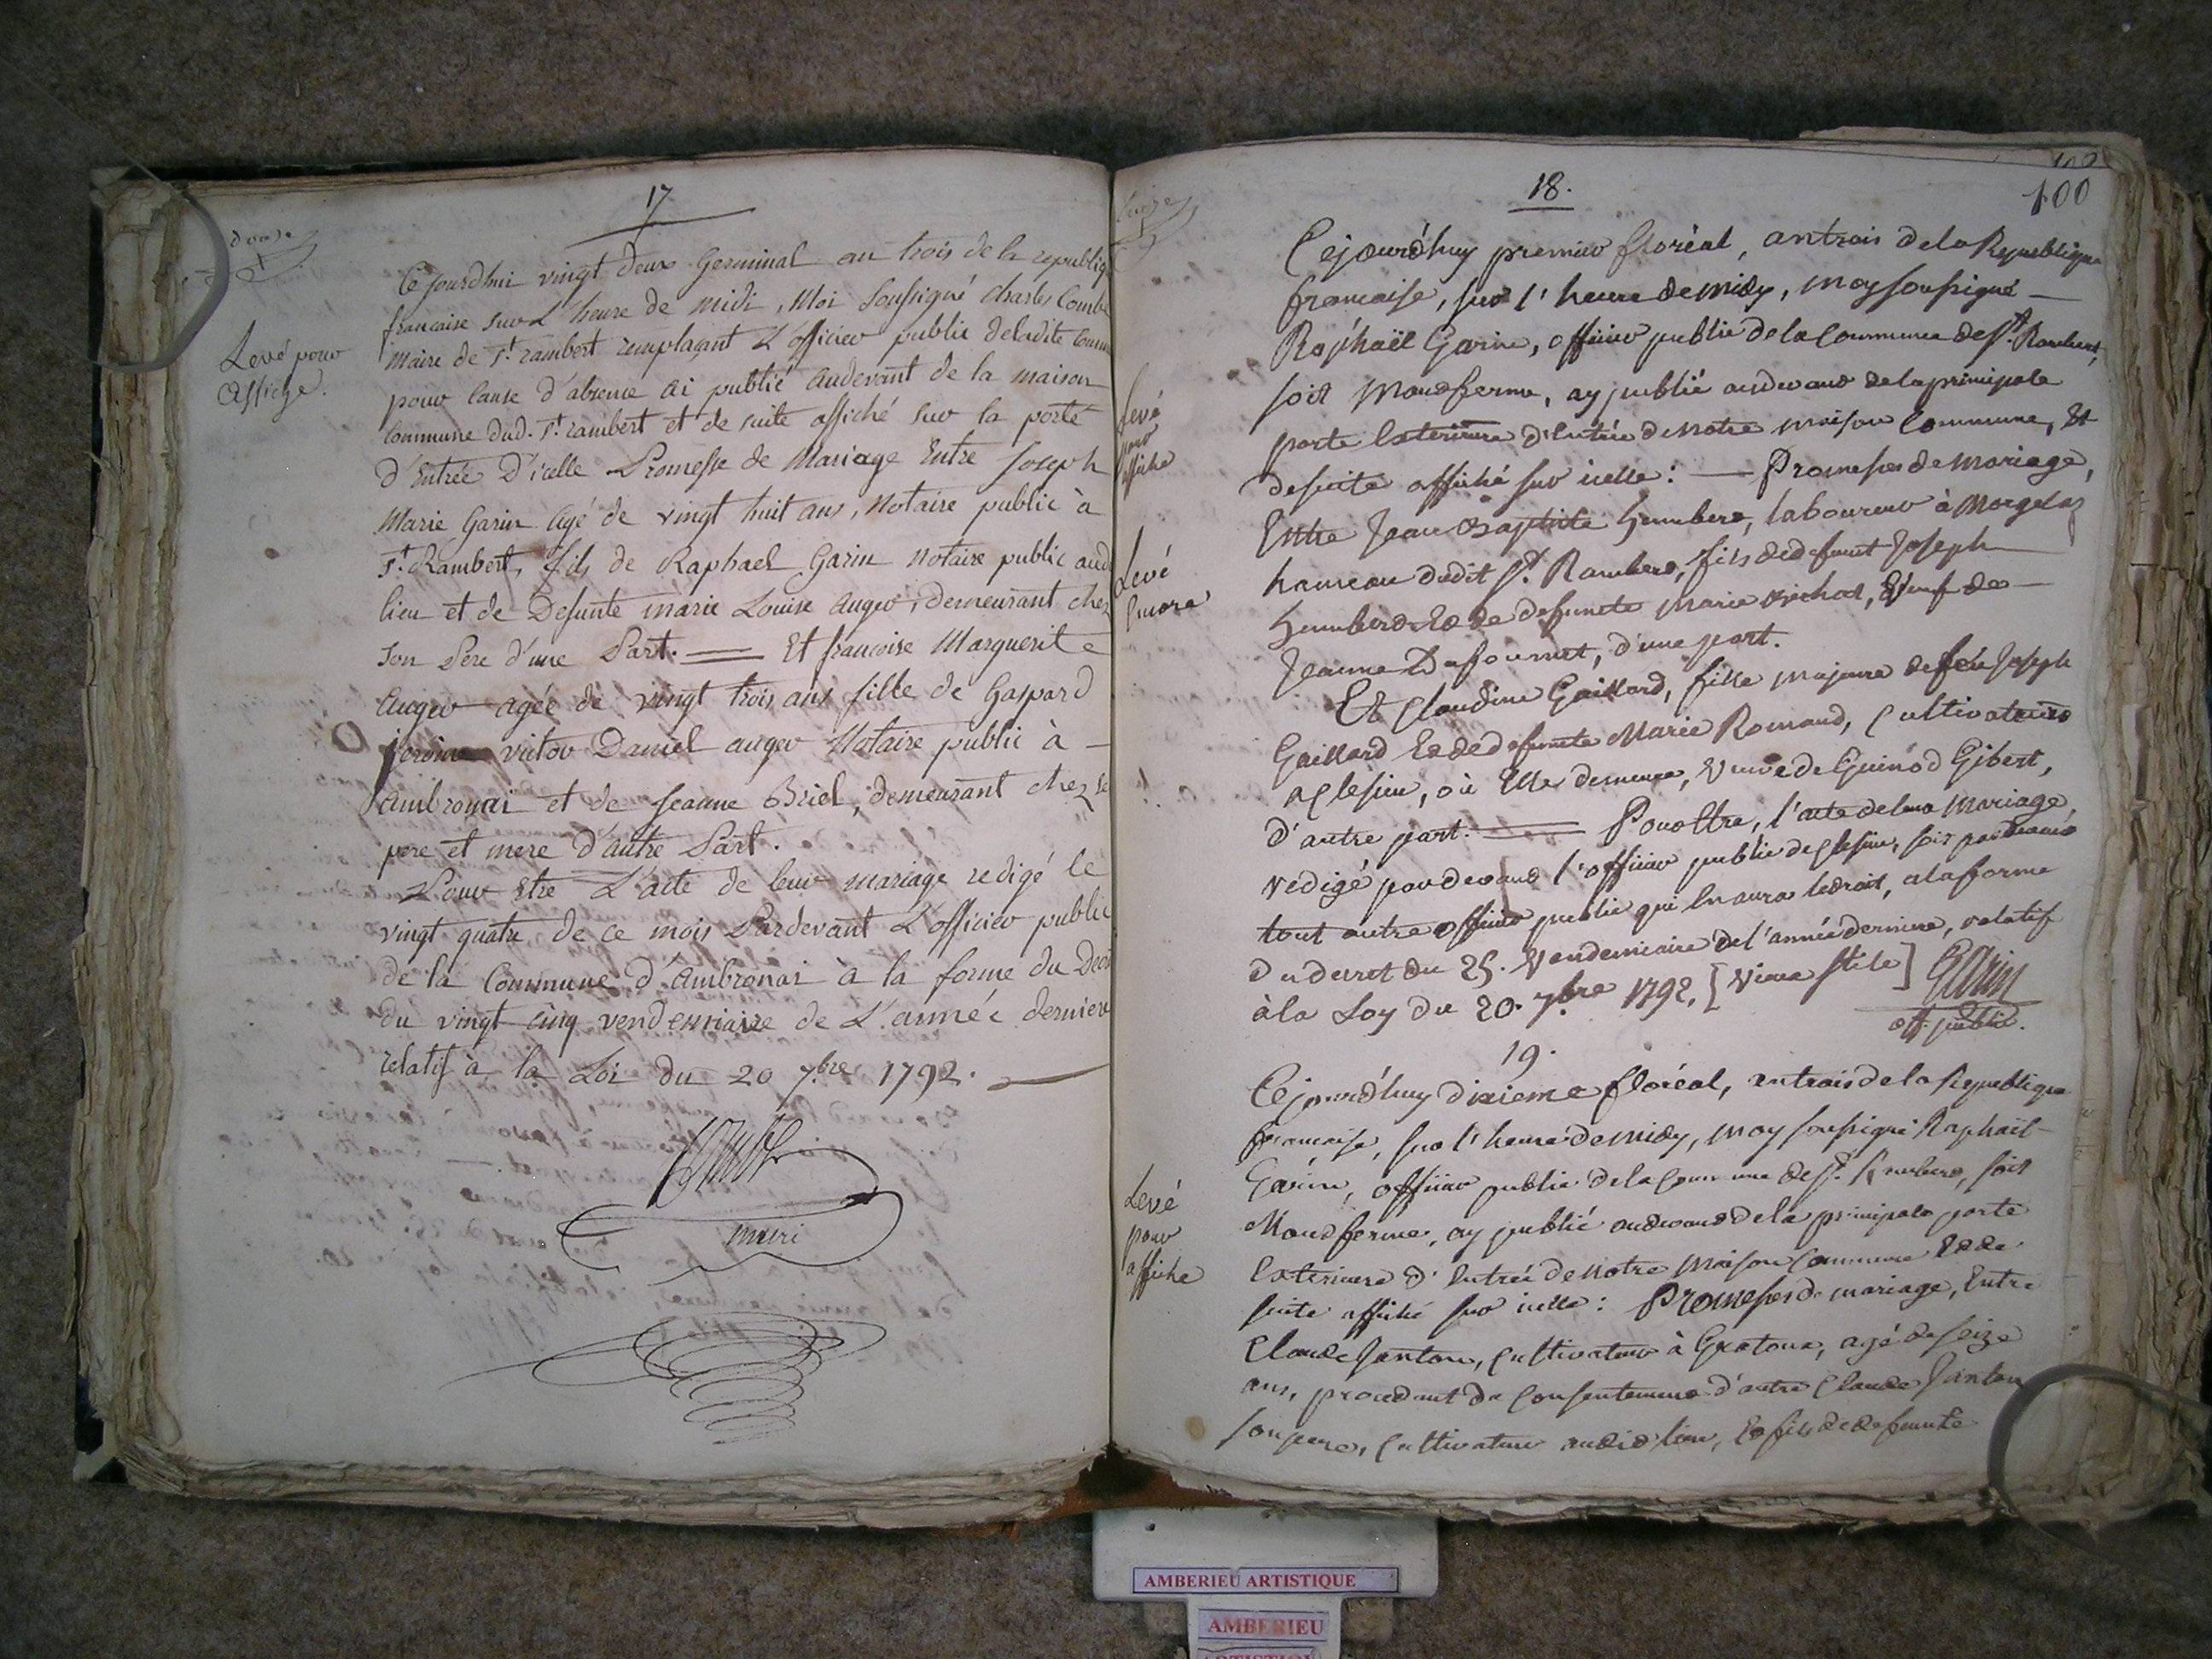 17
douze
Levé pour
affiche.
Cejourdhui vingt deux Germinal an trois de la republiq
francaise sur L'heure de midi, Moi Soussigné Charles Combe
maire de St. rambert remplaçant L'officier public deladite Commu
pour Cause d'absence ai publié audevant de la maison
Commune dud. St. rambert et de suite affiché sur la porte
d'Entrée D'icelle Promesse de Mariage Entre Joseph
Marie Garin agé de vingt huit ans, Notaire public à
St. Rambert, fils de Raphael Garin Notaire public aud
lieu et de Defunte marie Louise auger, demeurant chez
son Pere d'une Part. — Et francoise Marguerite
auger agée de vingt trois ans fille de Gaspard
jerome victor Daniel auger Notaire public à —
ambronai et de Jeanne Briel, demeurant chez se
pere et mere d'autre Part.
Pour Etre L'acte de leur mariage redigé le
vingt quatre de ce mois Pardevant L'officier public
de la Commune d'ambronai à la forme du Decr
du vingt cinq vendemiaire de L'année derniere
relatif à la Loi du 20 7.bre 1792.
Combe
maire
100
18.
Levé
pour
affiche
Levé
Encore
Cejourd'huy premier floréal, an trois dela Republique
francaise, sur l'heure de midy, moy soussigné —
Raphaël Garin, officier public de la Commune de St. Rambert,
soit Montferme, ay publié audevant de la principale
porte Exterieure d'Entrée de notre maison Commune, Et
desuite affiché sur icelle: — Promesses de Mariage,
Entre Jean Baptiste humbert, laboureur à Morgelas
hameau dudit St. Rambert, fils de defunt Joseph
humbert Et de defuncte Marie Michel, Veuf de —
Jeanne Dufournet, d'une part.
Et Claudine Gaillard, fille majeure de feu Joseph
Gaillard Et de defuncte Marie Romand, Cultivateurs
a Clesieu, où Elle demeure, Veuve de Guinod Gibert,
d'autre part. — Pour Etre, l'acte de leur Mariage,
rédigé pardevant l'officier public de Clesieu, soit pardevant
tout autre officier public qui En aura le droit, ala forme
du decret du 25. Vendemiaire de l'année derniere, relatif
à la Loy du 20. 7.bre 1792, [Vieux stile] Garin
off. public.
19.
Levé
pour
affiche
Cejourd'huy dixieme floréal, an trois de la Republique
francaise, sur l'heure de midy, moy soussigné Raphaël
Garin, officier public de la Commune de St. Rambert, soit
Montferme, ay publié audevant de la principale porte
Exterieure d'Entrée de notre maison Commune Et de
suite affiché sur icelle: Promesses de mariage, Entre
Claude Janton, Cultivateur à Gratoux, agé de seize
ans, procedant du Consentement d'autre Claude Janton
son pere, Cultivateur audit lieu, Et fils de defuncte
AMBERIEU ARTISTIQUE
AMBERIEU
ARTISTIQUE